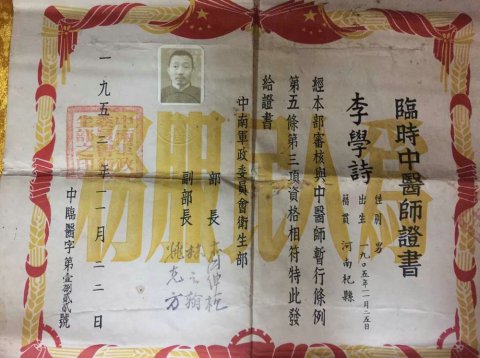 臨時中醫師證書
李學詩
性別 男
出生 一九〇五年一月二五日
籍貫 河南杞縣
經本部審核與中醫師暫行條例
第五條第三項資格相符特此發
給證書
中南軍政委員會衛生部
部長
副部長
一九五二年一一月二二日
中臨醫字第壹捌貳貳號
為人民服務